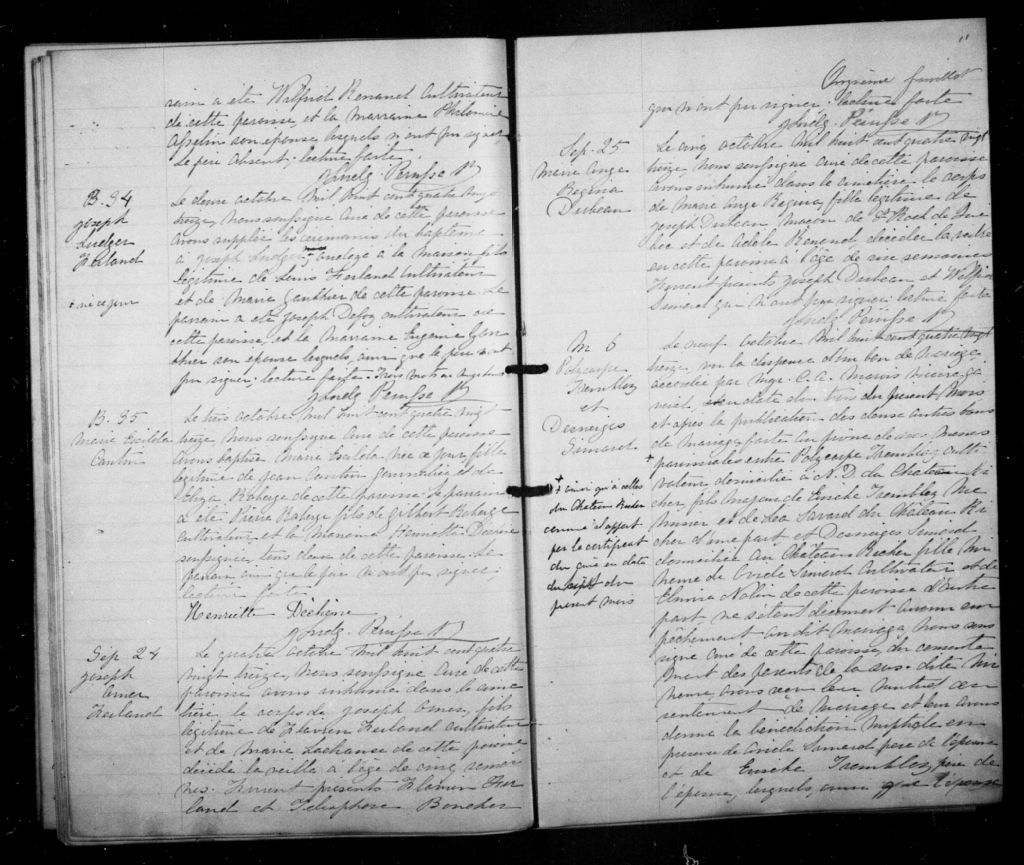 rain a été Wilfrid Renaud Cultivateur
de cette paroisse, et la marraine Philomène
Asselin son épouse lesquels n'ont pu signer.
Le père absent. lecture faite.
B. 34
Joseph
Ludger
Ferland
+ né ce jour
Le deux octobre Mil huit cent quatre vingt
treize, Nous soussigné curé de cette paroisse
avons supplée les cérémonies du baptême
à Joseph Ludger, ondoyé à la maison, fils
légitime de Louis Ferland Cultivateur
et de Marie Gauthier de cette paroisse. Le
parrain a été Joseph Defoy cultivateur de
cette paroisse, et la marraine Eugénie Gau
thier son épouse lesquels, ainsi que le père n'ont
pu signer. lecture faite. Trois mots en
B. 35
Marie
Cantin
Le trois octobre Mil huit cent quatre vingt
treize Nous soussigné Curé de cette paroisse
avons baptisé Marie née ce jour, fille
légitime de Jean Cantin journalier et de
Eliza Roberge de cette paroisse. Le parrain
a été Pierre Roberge fils de Gilbert Roberge
cultivateur, et la Marraine Henriette
soussignée, tous deux de cette paroisse. Le
parrain, ainsi que le père n'ont pu signer.
lecture faite.
Henriette
Sép. 24
Joseph
Omer
Ferland
Le quatre octobre Mil huit cent quatre
vingt treize, Nous soussigné Curé de cette
paroisse avons inhumé dans le cime
tière le corps de Joseph Omer, fils
légitime de Flavien Ferland cultivateur
et de Marie Lachance de cette paroisse
décédé la veille à l'âge de cinq semai
nes. Furent présents Flavien Fer
land et Télesphore Boucher
11
Onzième feuillet
qui n'ont pu signer. lecture faite
Sép. 25
Marie Ange
Regina
Dubeau
Le cinq octobre Mil huit cent quatre vingt
treize, Nous soussigné curé de cette paroisse
avons inhumé dans le cimetière le corps
de Marie Ange Regina, fille légitime de
Joseph Dubeau, Maçon de St Roch de Qué
bec et de Adèle Renaud décédée la veille
en cette paroisse à l'âge de six semaines
Furent présents Joseph Dubeau et
Simard qui n'ont pu signer. lecture faite
M 6
Polycarpe
Tremblay
et
Desneiges
Simard
+ ainsi qu'à celles
du Chateau Richer
comme il appert
par le certificat
du curé en date
du sept du
présent mois
Le neuf octobre Mil huit cent quatre vingt
treize, vu la dispense d'un ban de Mariage
accordée par Mgr. C. A. Marois vicaire gé
néral, en date du du présent Mois
et après la publication des deux autres bans
de mariage faite au prône de nos Messes
+ paroissiales entre Polycarpe Tremblay culti
vateur domicilié à N. D. du Chateau Ri
cher, fils Majeur de Tremblay Me
nuisier et de Léa Savard du Chateau Ri
cher d'une part et Desneiges Simard
domiciliée au Chateau Richer fille Mi
neure de Ovide Simard Cultivateur et de
Elmire Nolin de cette paroisse d'autre
part, ne s'étant découvert aucun em
pêchement au dit mariage, Nous sous
signé Curé de cette paroisse, du consente
ment des parents de la sus-dite Mi
neure, avons reçu leur mutuel con
sentement de Mariage et leur avons
donné la bénédiction nuptiale en
présence de Ovide Simard père de l'épouse
et de Tremblay, père de
l'époux, lesquels, ainsi que l'épouse